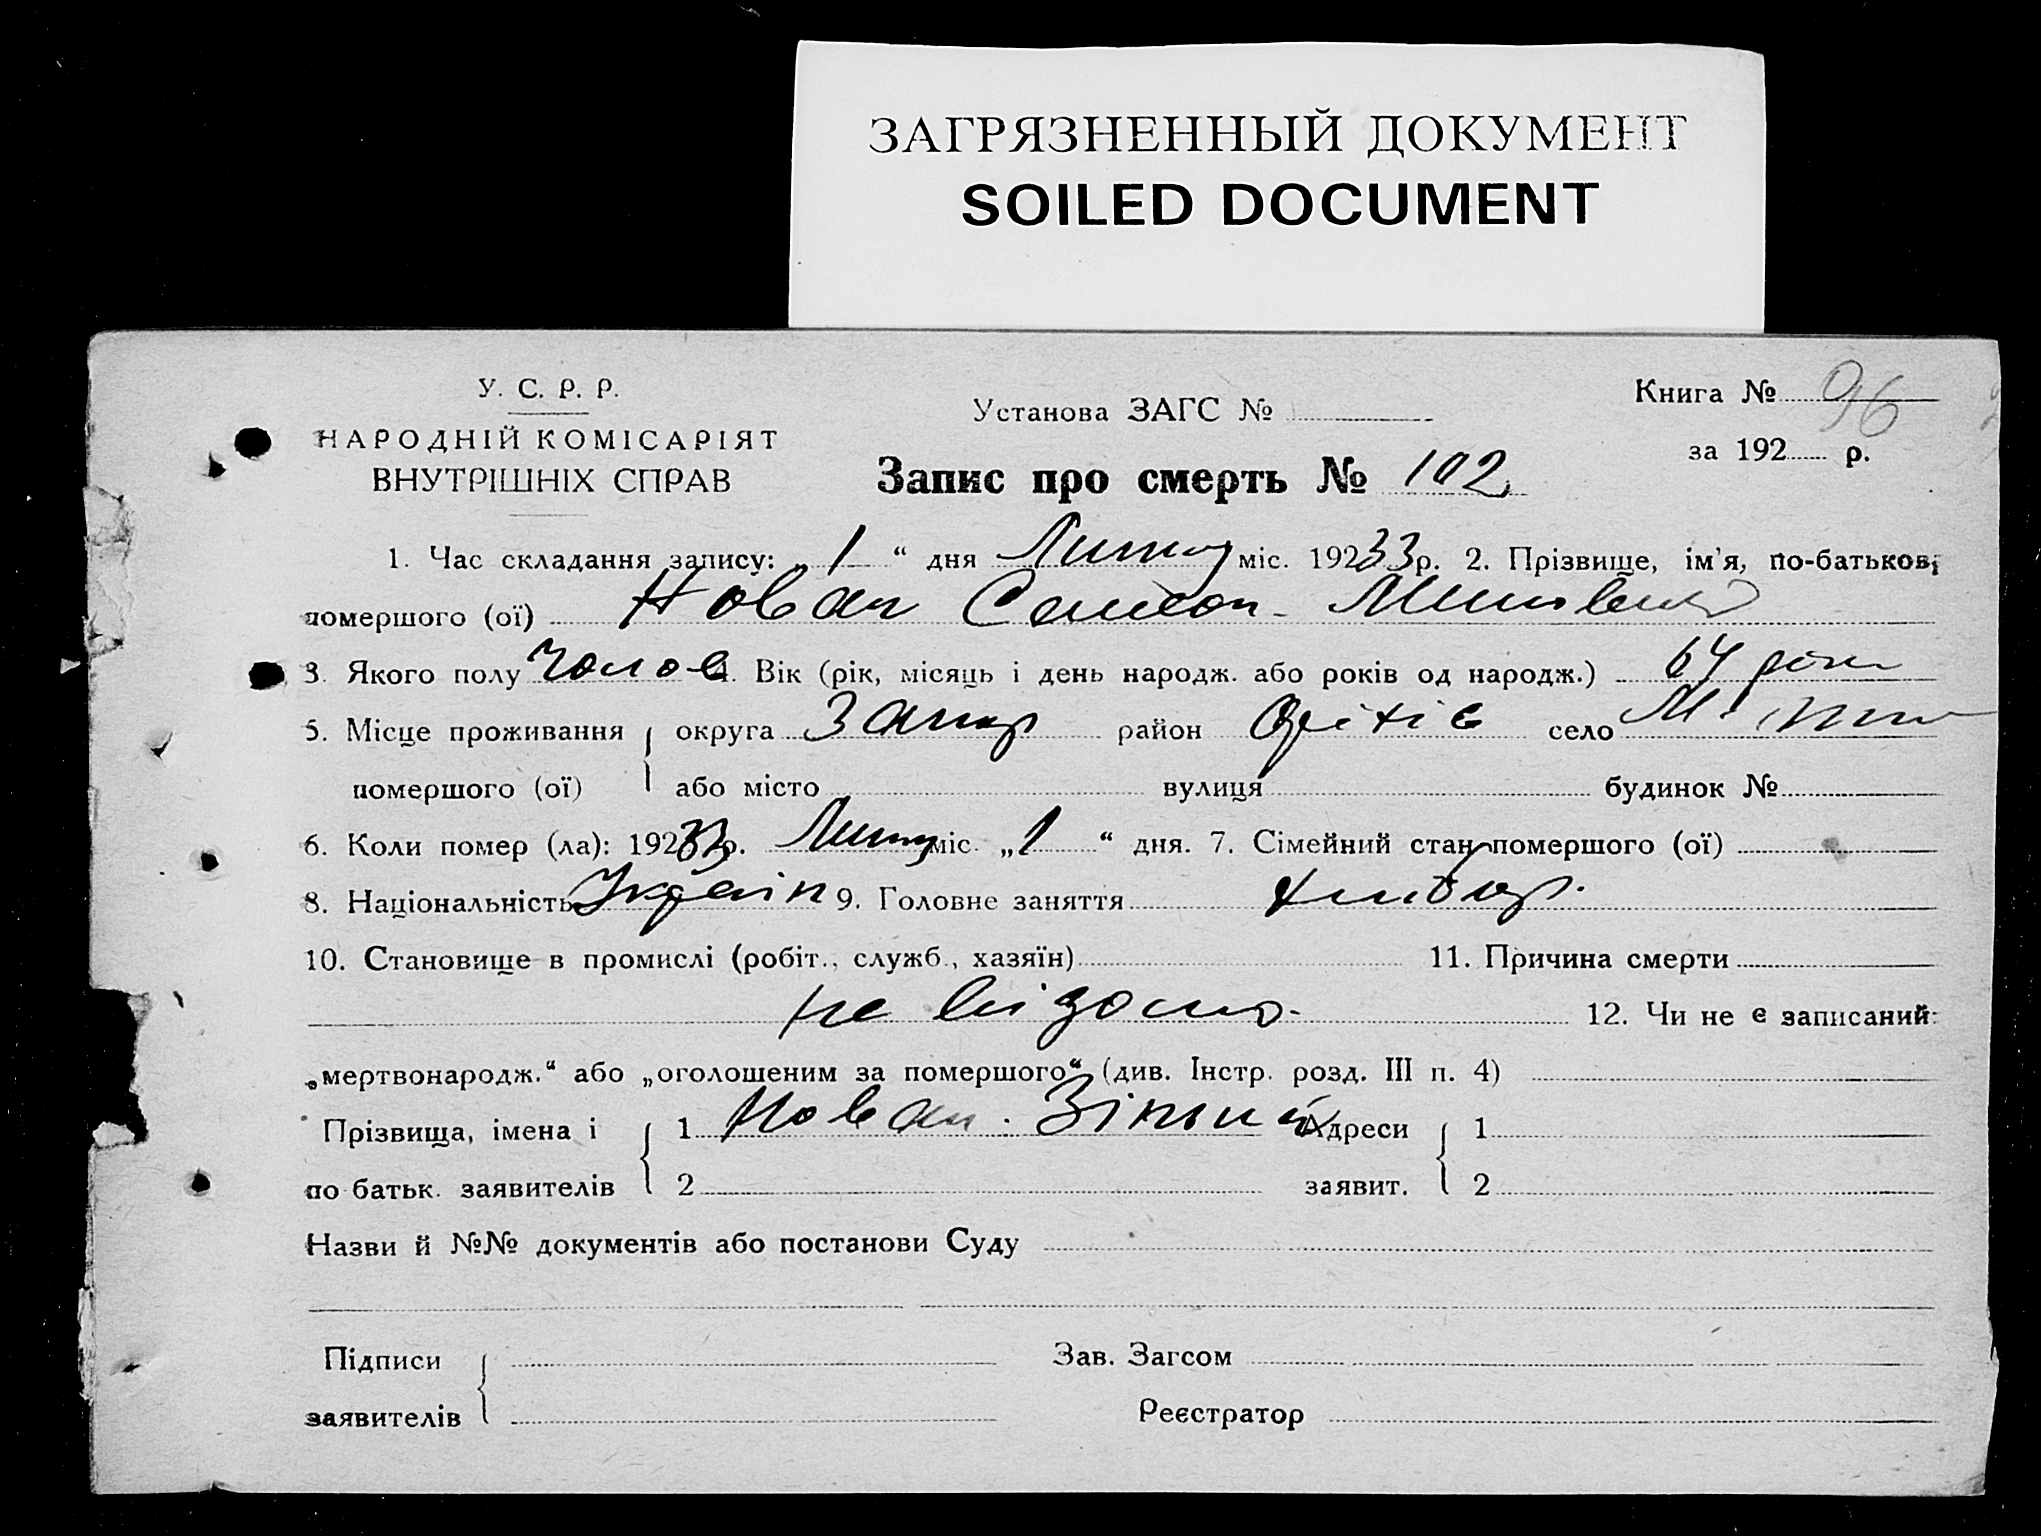 ЗАГРЯЗНЕННЫЙ ДОКУМЕНТ
SOILED DOCUMENT
У. С. Р. Р.
НАРОДНІЙ КОМІСАРІЯТ
ВНУТРІШНІХ СПРАВ
Установа ЗАГС №
Книга № 96
за 192 р.
Запис про смерть № 102
1. Час складання запису: „ 1 “ дня міс. 19233 р. 2. Прізвище, ім'я, по-батькові
помершого (ої) Новак
3. Якого полу Чолов 4. Вік (рік, місяць і день народж. або років од народж.) 64 роки
5. Місце проживання округа Запор район Оріхів село
помершого (ої) або місто вулиця будинок №
6. Коли помер (ла): 19233 р. міс. „ 1 “ дня. 7. Сімейний стан помершого (ої)
8. Національність Україн 9. Головне заняття хлібор.
10. Становище в промислі (робіт., служб., хазяїн) 11. Причина смерти
не відомо. 12. Чи не є записаний:
„мертвонародж.“ або „оголошеним за помершого“ (див. Інстр. розд. III п. 4)
Прізвища, імена і 1 Новак Адреси 1
по батьк. заявителів 2 заявит. 2
Назви й №№ документів або постанови Суду
Підписи Зав. Загсом
заявителів Реєстратор